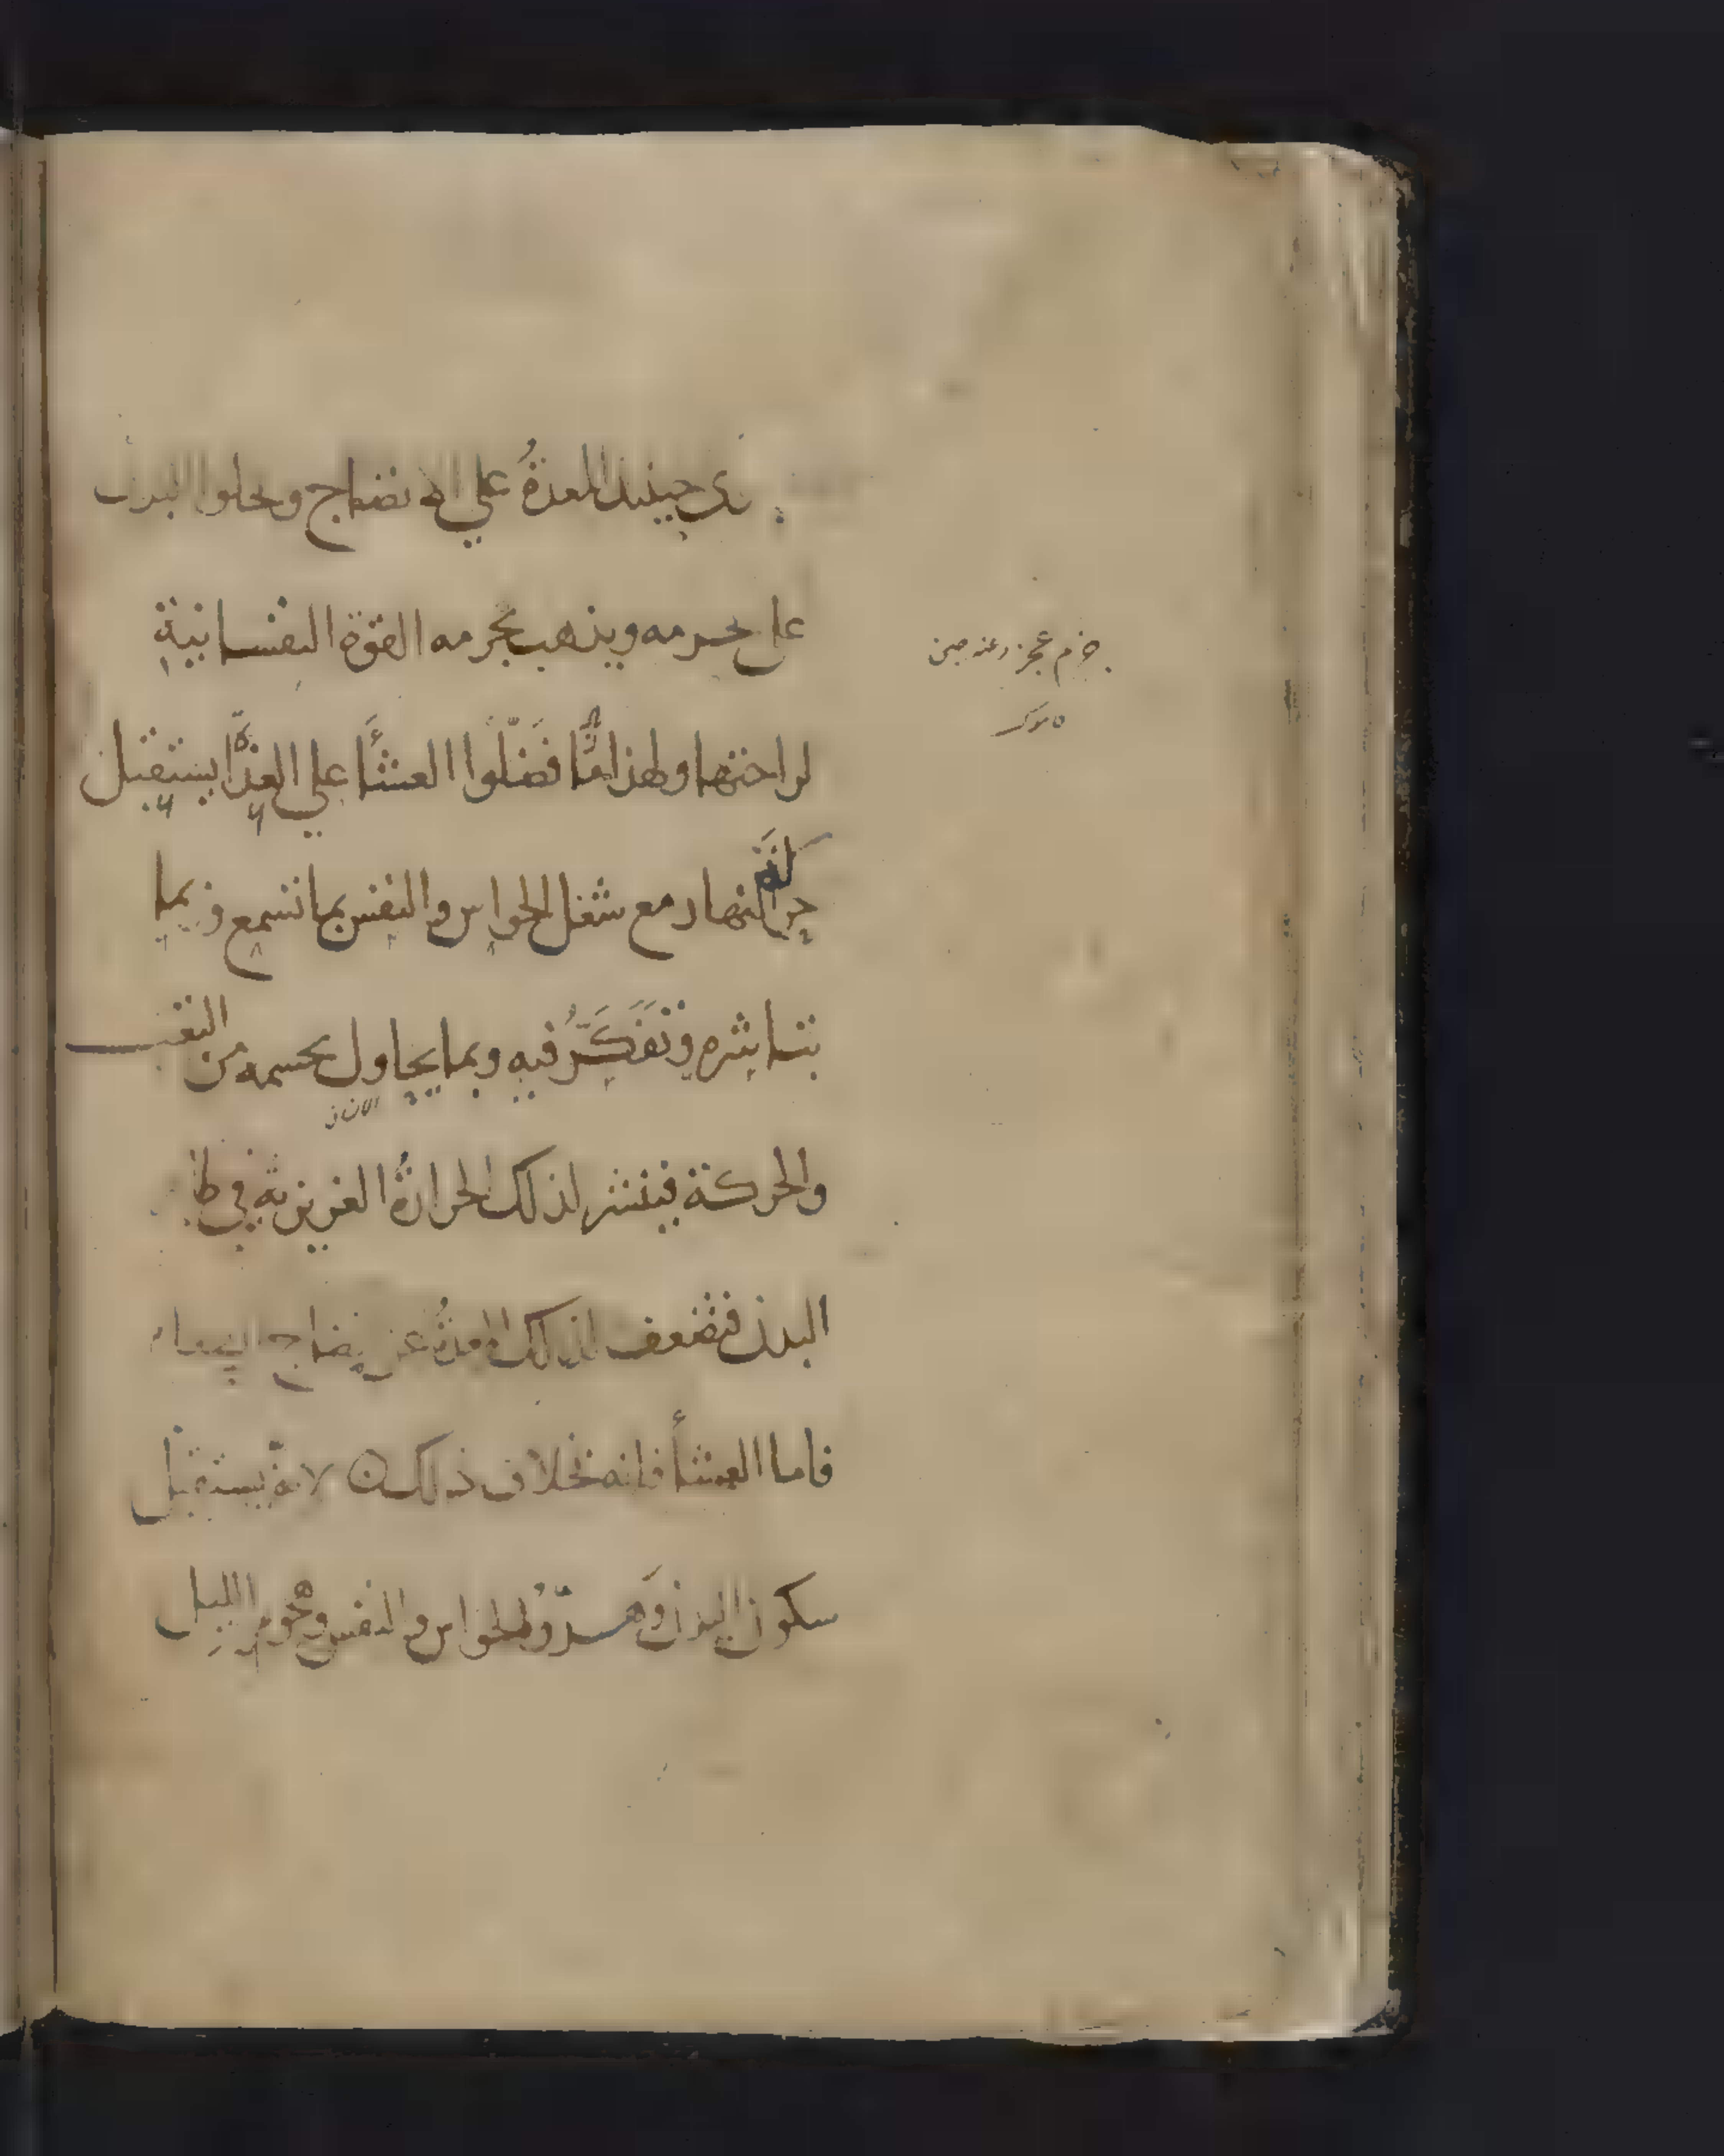 حينيذ المعدة علي الانضاج ويخلوا البدن
على جرمه ويذهب بجرمه القوة النفسانية
لراحتها ولهذا ما فضلوا العشأ علي الغذا يستقبل
حر النهار مع شغل الحواس والنفس بما تسمع وبما
تباشره وتفكر فيه وبما يحاول بجسمه من التعب
والحركة فينتشر لذلك الحرارة الغريزية في ظا
البدن فتضعف لذلك المعدة عن إنضاج
فاما العشأ فانه بخلاف ذلك لانه يستقبل
سكون البدن وهدو الحواس والنفس وهجوم الليل